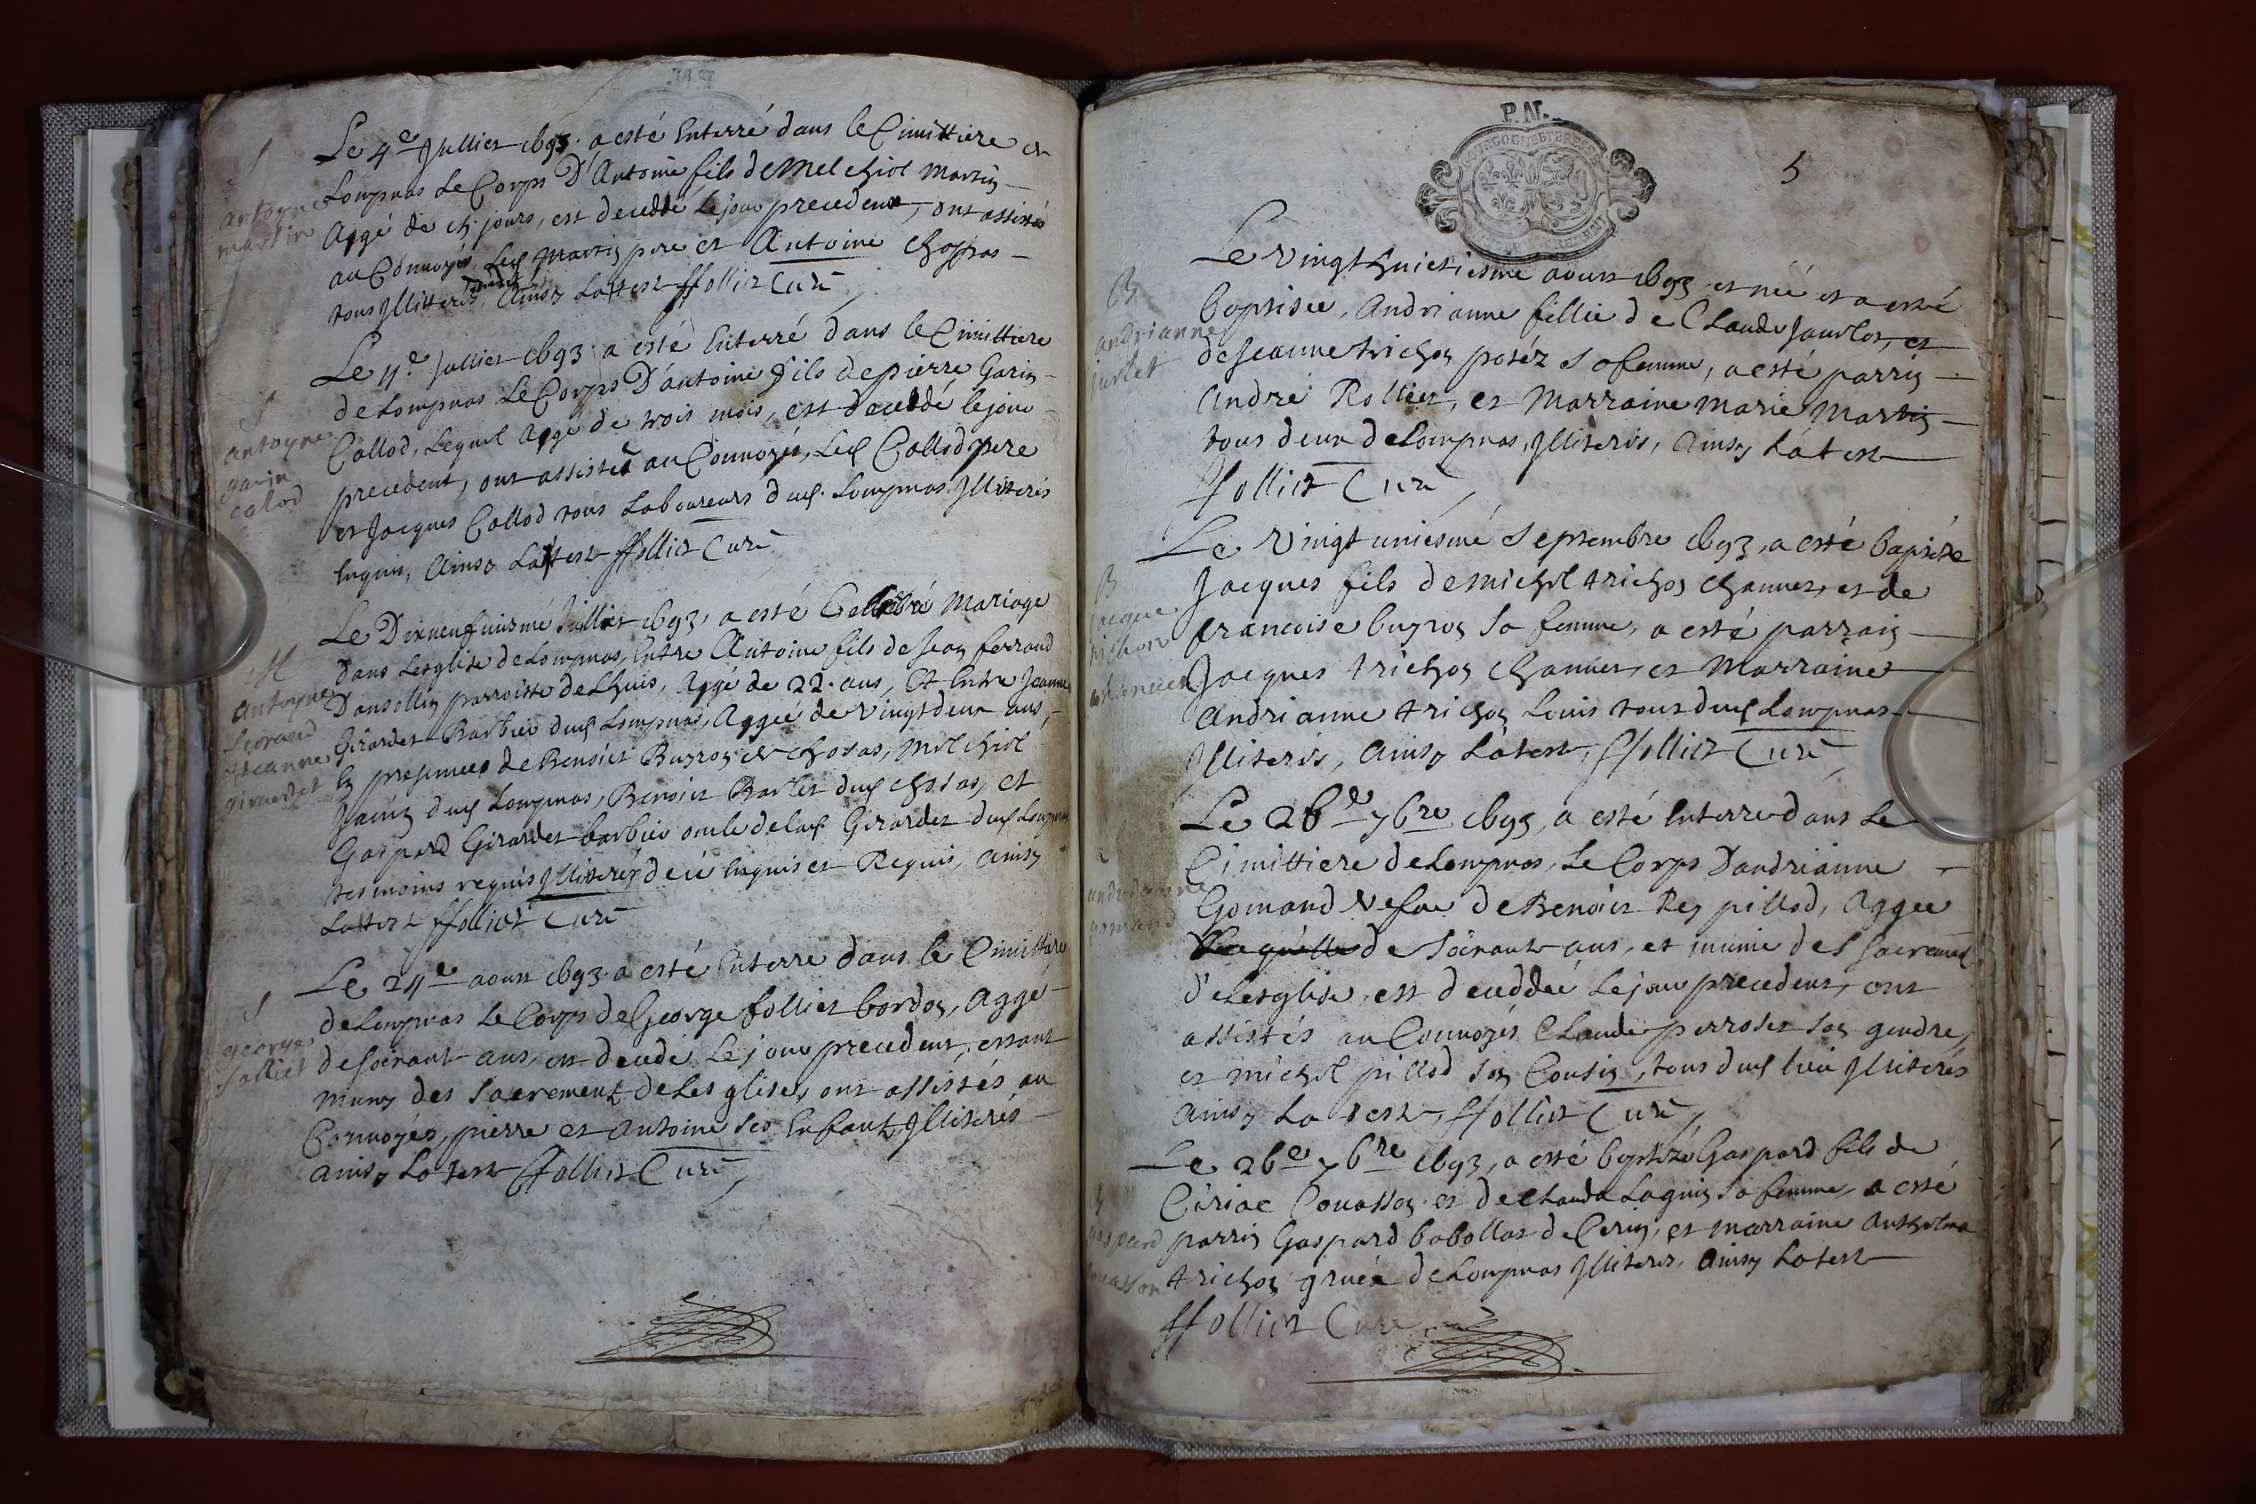 Le 4e Jullier 1693 a esté Enterré dans le Cimittiere de
Lompnas Le Corps D'Antoine fils de Melchiol Martin
Aagé de jours, est decedde le jour precedent, ont assistés
au Convoyés Led Martin pere et Antoine
tous Illiterés, Ainsy Lattest ffolliet Curé
antoyne
martin
Le 11e Jullier 1693 a esté Enterré dans le Cimittiere
de Lompnas Le Corps D'antoine fils de pierre Garin
Collod, Lequel Agge de trois mois, est deceddé le jour
precedent, ont assistés au Convoyés, Led Collod pere
et Jacques Collod tous Laboureurs dud. Lompnas Illiterés
Enquis, Ainsy Lattest ffolliet Curé
antoyne
garin
calod
Le Dixneufviesme Jullier 1693, a esté Cellebré Mariage
Dans Lesglise de Lompnas, Entre Antoine fils de Jean ferrand
Dansollin parroisse de Lhuis, Aagé de 22 ans, Et Entre Jeanne
Girardet Barbier dud Lompnas, Aggeé de Vingt deux ans,
En presences de Benoict Buyron de Chosas, Melchiol
dud Lompnas, Benoict dud Chosas, et
Gaspard Girardet barbier oncle de lad. Girardet dud Lompnas
tesmoins requis Illiteréz de ce Enquis et Requis, ainsy
Lattest ffolliet Curé
M
antoyne
ferrand
jeanne
girardet
Le 24e aoust 1693 a esté Enterré dans le Cimittiere
de Lompnas Le Corps de George follier bordon, Aggé
de soixant ans, est decedé Le jour precedent, estant
muny des sacrement de Lesglise, ont assistés au
Convoyés, pierre et Antoine ses Enfant Illiterés
ainsy Latest ffolliet Curé
george
folliet
P.N.
5
Le Vingt huictiesme aoust 1693 est née et a esté
baptisée, Andrianne fillie de Claude Jaurlot, et
de Jeanne trichon potéz sa femme, a esté parrin
André Rollier, et Marraine Marie Martin
tous deux de Lompnas, Illiterés, Ainsy Latest
ffolliet Curé
B
andrianne
jurlet
Le Vingt uniesme septembre 1693, a esté baptisé
Jacques fils de Michel trichon Channer, et de
francoise buyron sa femme, a esté parrain
Jacques trichon Channer, et Marraine
Andrianne trichon Louis tous dud Lompnas
Illiterés, Ainsy Latest, ffolliet Curé
B
jacque
trichon
Le 26e 7bre 1693, a esté Enterre dans Le
Cimittiere de Lompnas, Le Corps Dandrianne
Gomand Vefve de Benoict Rey pillod, Aggee
de soixant ans, et munie des sacrement
de Lesglise, est deceddeé Le jour precedent, ont
assistés au Convoyés Claude perroset son gendre,
et michel pillod son Cousin, tous dud lieu Illiterés
Ainsy Latest, ffolliet Curé
gomand
Le 26e 7bre 1693, a esté baptisé Gaspard fils de
Ciriac Couasson et de Claude Laguin sa femme, a esté
parrin Gaspard babollat de Cerin, et marraine Anthelma
trichon gruéa de Lompnas Illiteres, Ainsy Latest
ffolliet Curé
gaspard
couasson